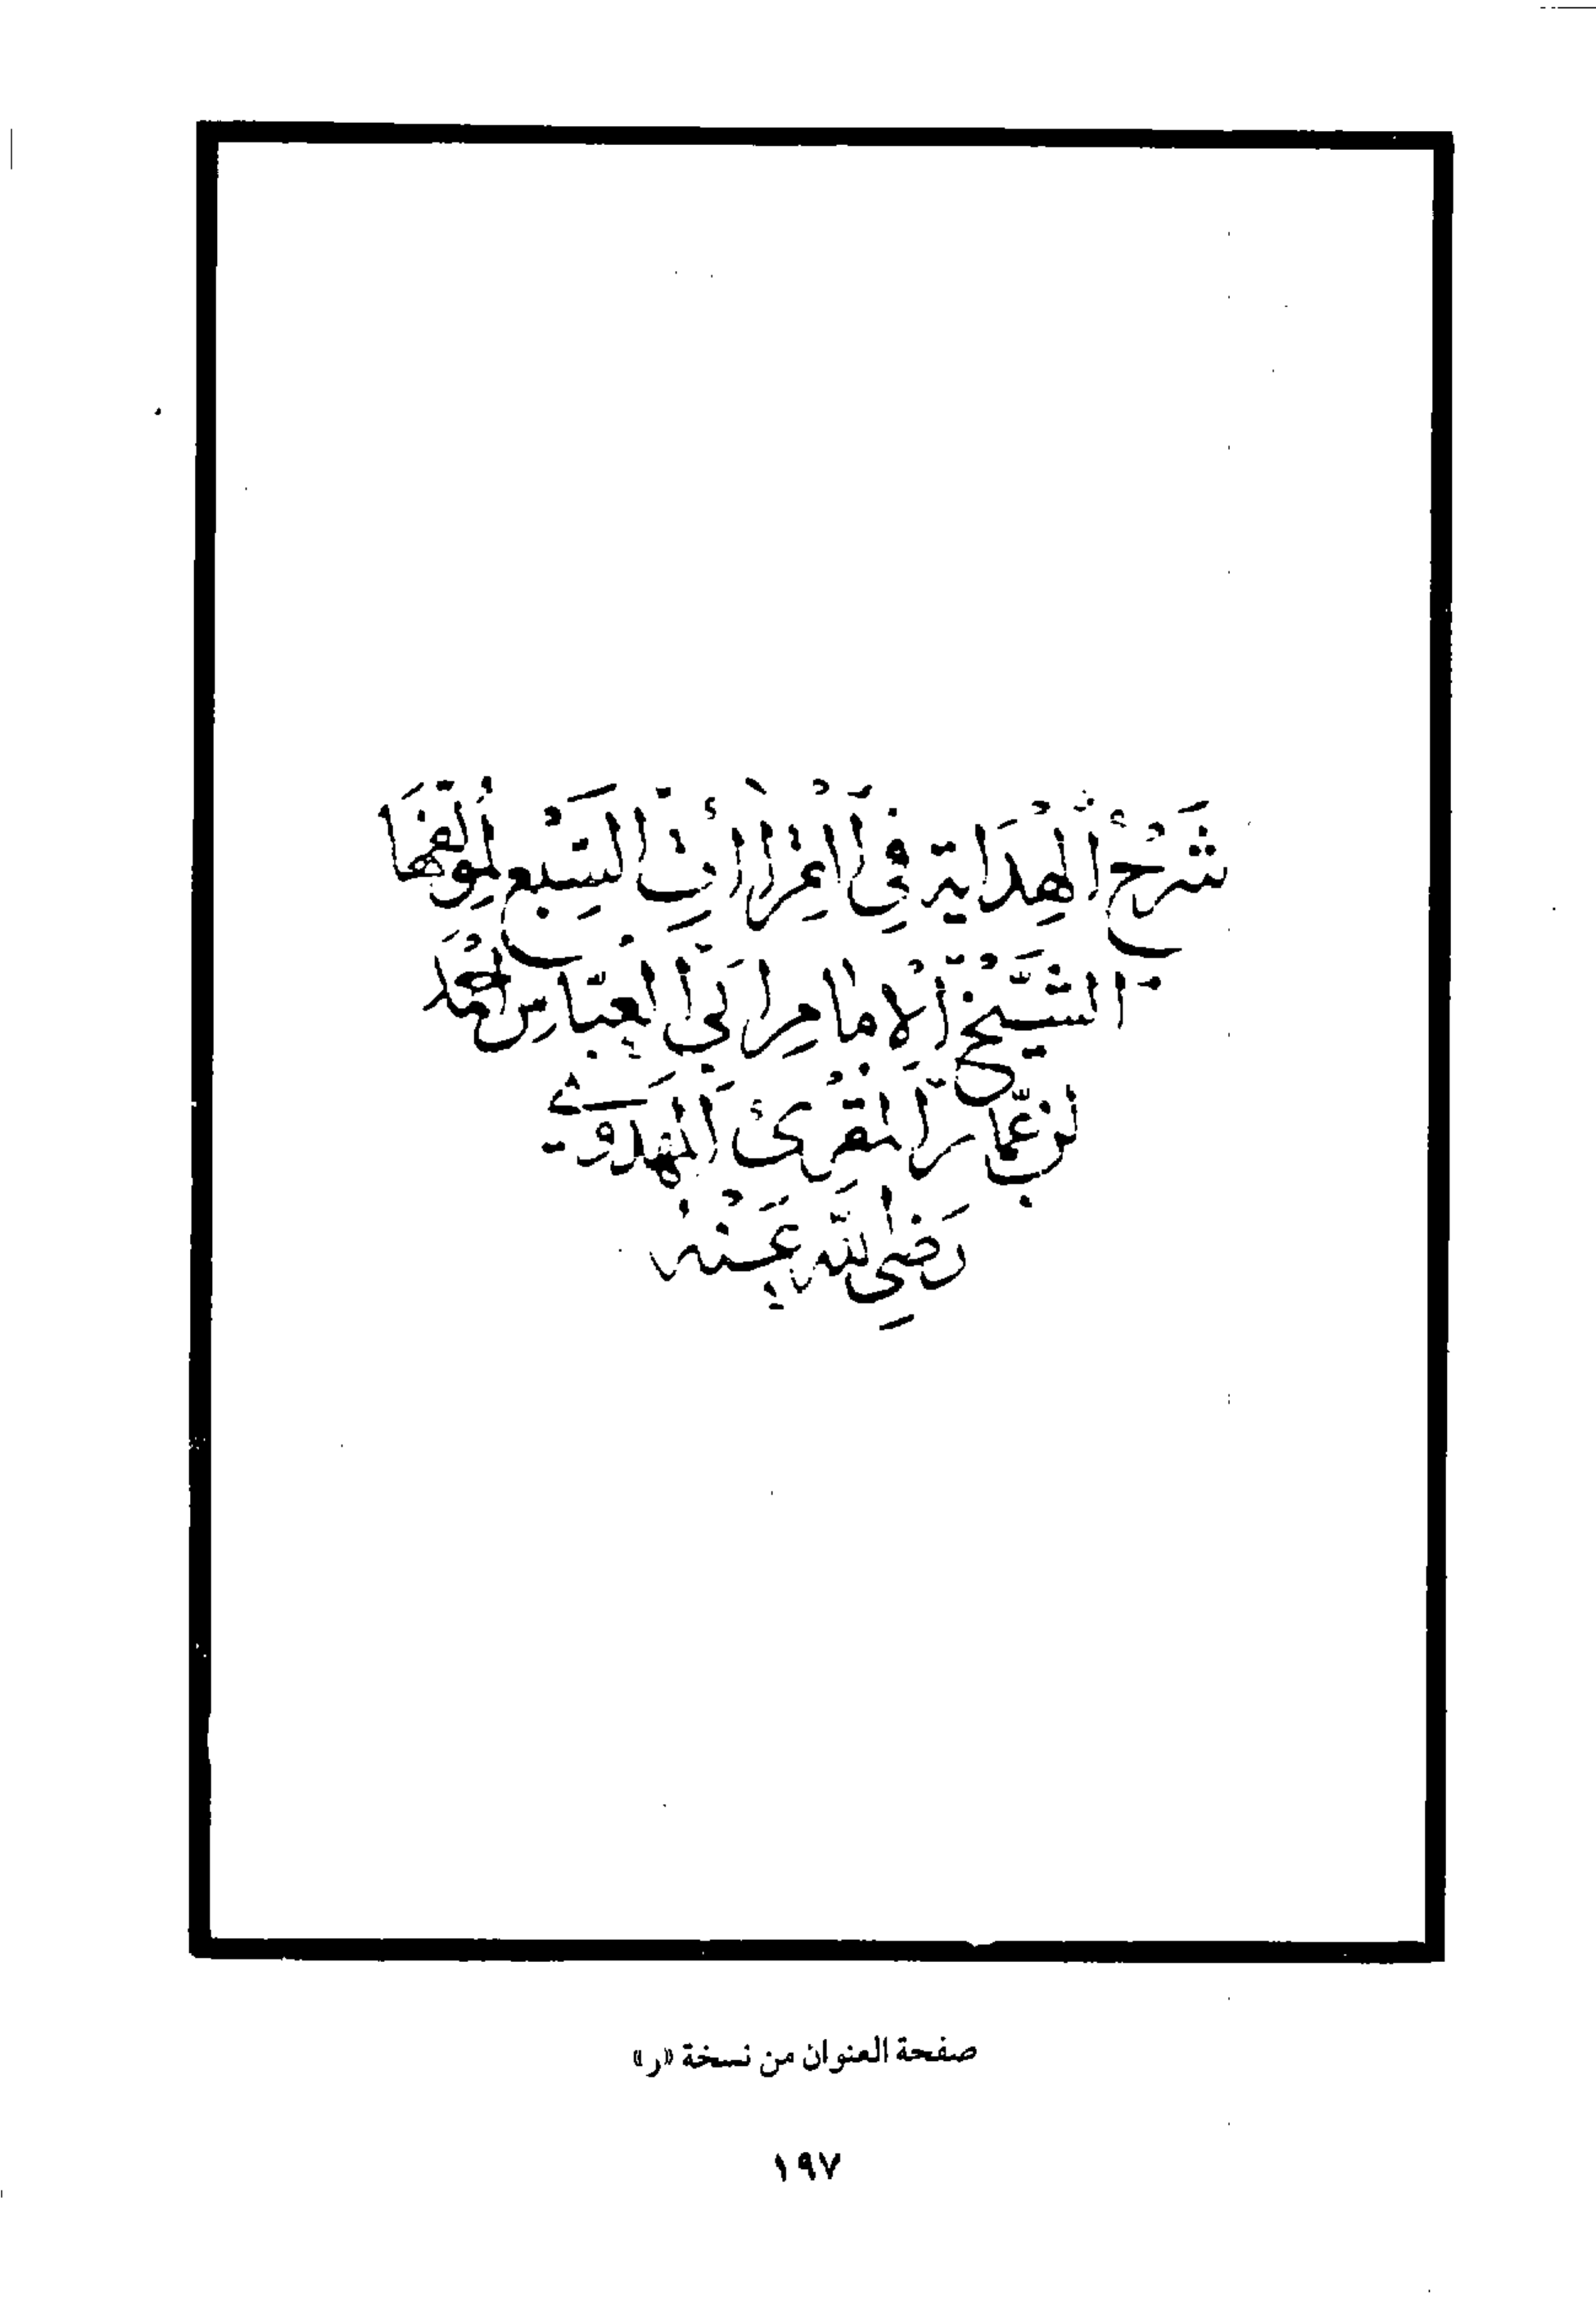 شَرْحُ الْهِدَايَةِ فِي الْقِرَاءَاتِ السَّبْعِ لِمُؤَلِّفِهَا
الشَّيْخِ الْإِمَامِ أَبِي الْعَبَّاسِ أَحْمَدَ
بْنِ عَمَّارٍ الْمُقْرِئِ الْمَهْدَوِيِّ
رَضِيَ اللَّهُ عَنْهُ
صفحة العنوان من نسخة «ر»
١٩٧